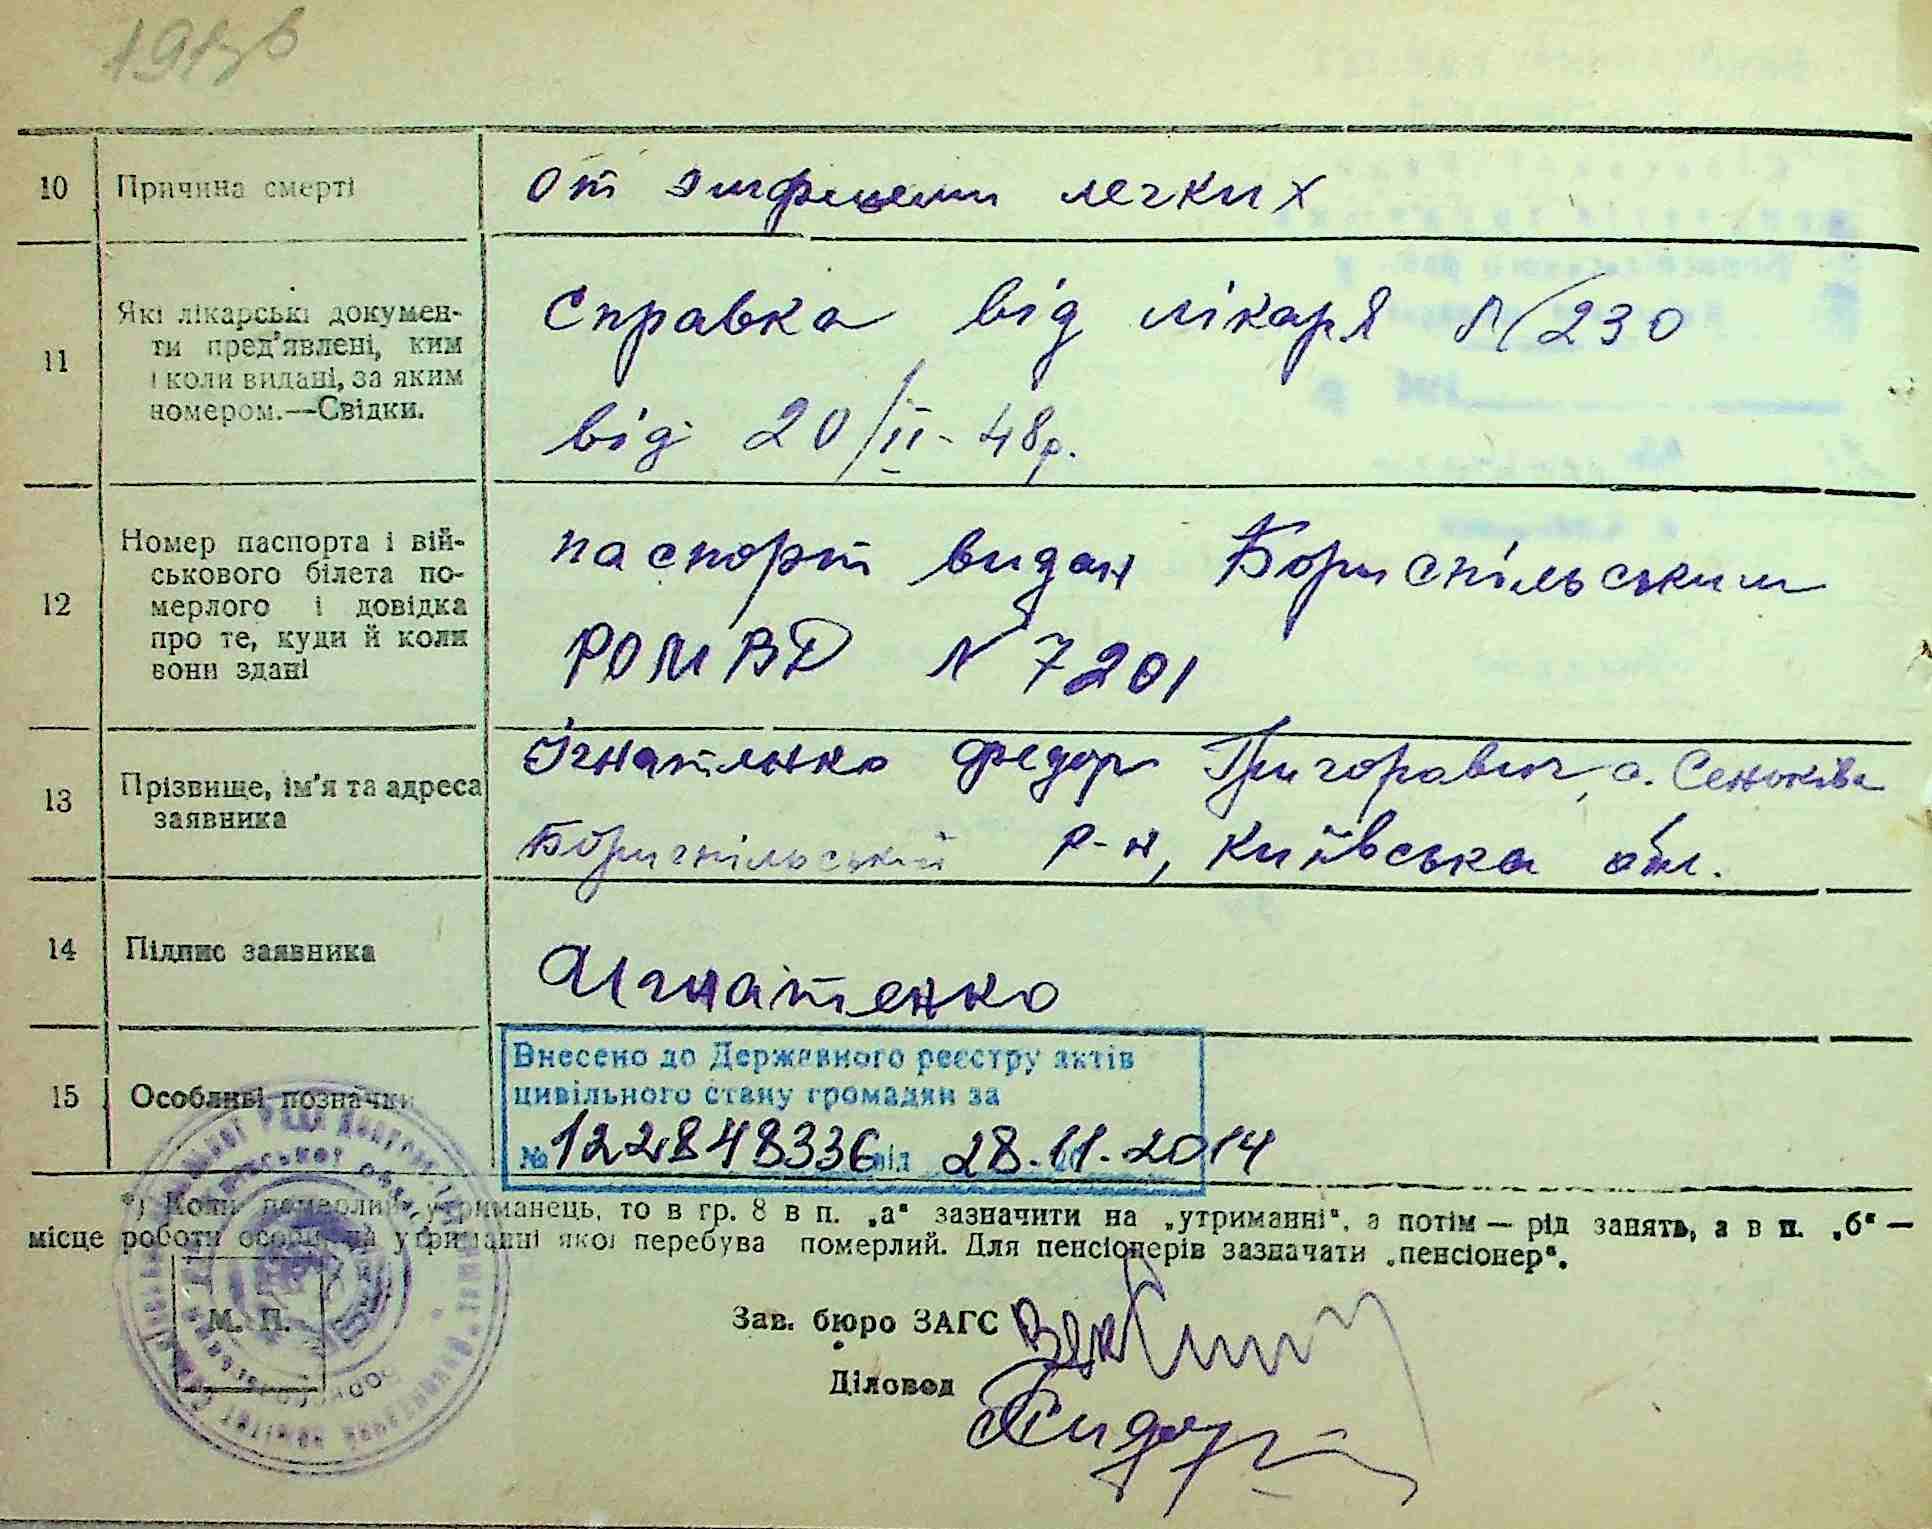 10 Причина смерті от эмфиземи легких
11 Які лікарські докумен-
ти пред'явлені, ким
і коли видані, за яким
номером.—Свідки.
Справка від лікаря № 230
від 20/II-48р.
12 Номер паспорта і вій-
ськового білета по-
мерлого і довідка
про те, куди й коли
вони здані
паспорт видан Бориспільським
РОМВД № 7201
13 Прізвище, ім'я та адреса
заявника
Ігнатенко Федор Григоравич, с. Сеньківка
Бориспільський р-н, Київська обл.
14 Підпис заявника Игнатенко
15 Особливі позначки
Внесено до Державного реєстру актів
цивільного стану громадян за
№ 122848336 від 28.11.2014
*) Коли померлий утриманець, то в гр. 8 в п. „а“ зазначити на „утриманні“, а потім — рід занять, а в п. „б“ —
місце роботи особи, на утриманні якої перебува померлий. Для пенсіонерів зазначати „пенсіонер“.
М. П.
Зав. бюро ЗАГС
Діловод